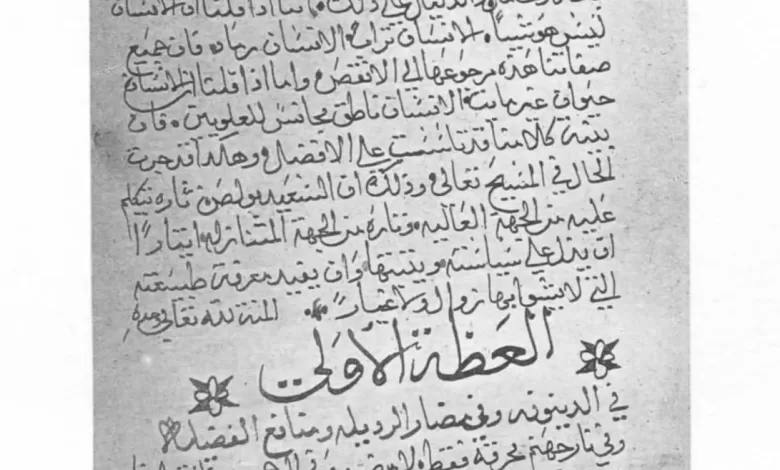 على ذلك. فاننا اذا قلنا ان الانسان
ليس هو شيئاً. الانسان تراب. الانسان رماد. فان جميع
صفاتنا هذه مرجوعها الى الانقص. واما اذا قلنا ان الانسان
حيوان غير مايت. الانسان ناطق مجانس للعلويين. فان
بنية كلامنا قد تاسست على الافضل. وهكذا قد جرت
الحال في المسيح تعالى. وذلك ان السعيد بولص تاره يتكلم
عليه من الجهة العاليه. وتارة من الجهة المتنازله. ايثارًا
ان يدل على سياسته ويثبتها. وان يفيد معرفة طبيعته
التي لا يشوبها زوال ولا غيار. المنة لله تعالى
العظة الأولى
في الدينونه. وفي مضار الرديله ومنافع الفضيله
وفي نار جهنم محرقة فقط